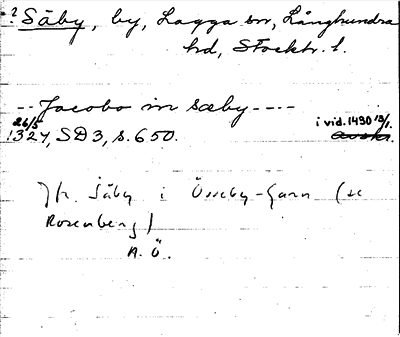 ? Säby, by, Lagga sn, Långhundra
hd, Stockh. l.
-- Jacobo in sæby ----
26/5 1324, SD 3, s. 650. i vid. 1430 13/1.
Jfr. Säby i Össeby-Garn (se
Rosenberg)
A. Ö.